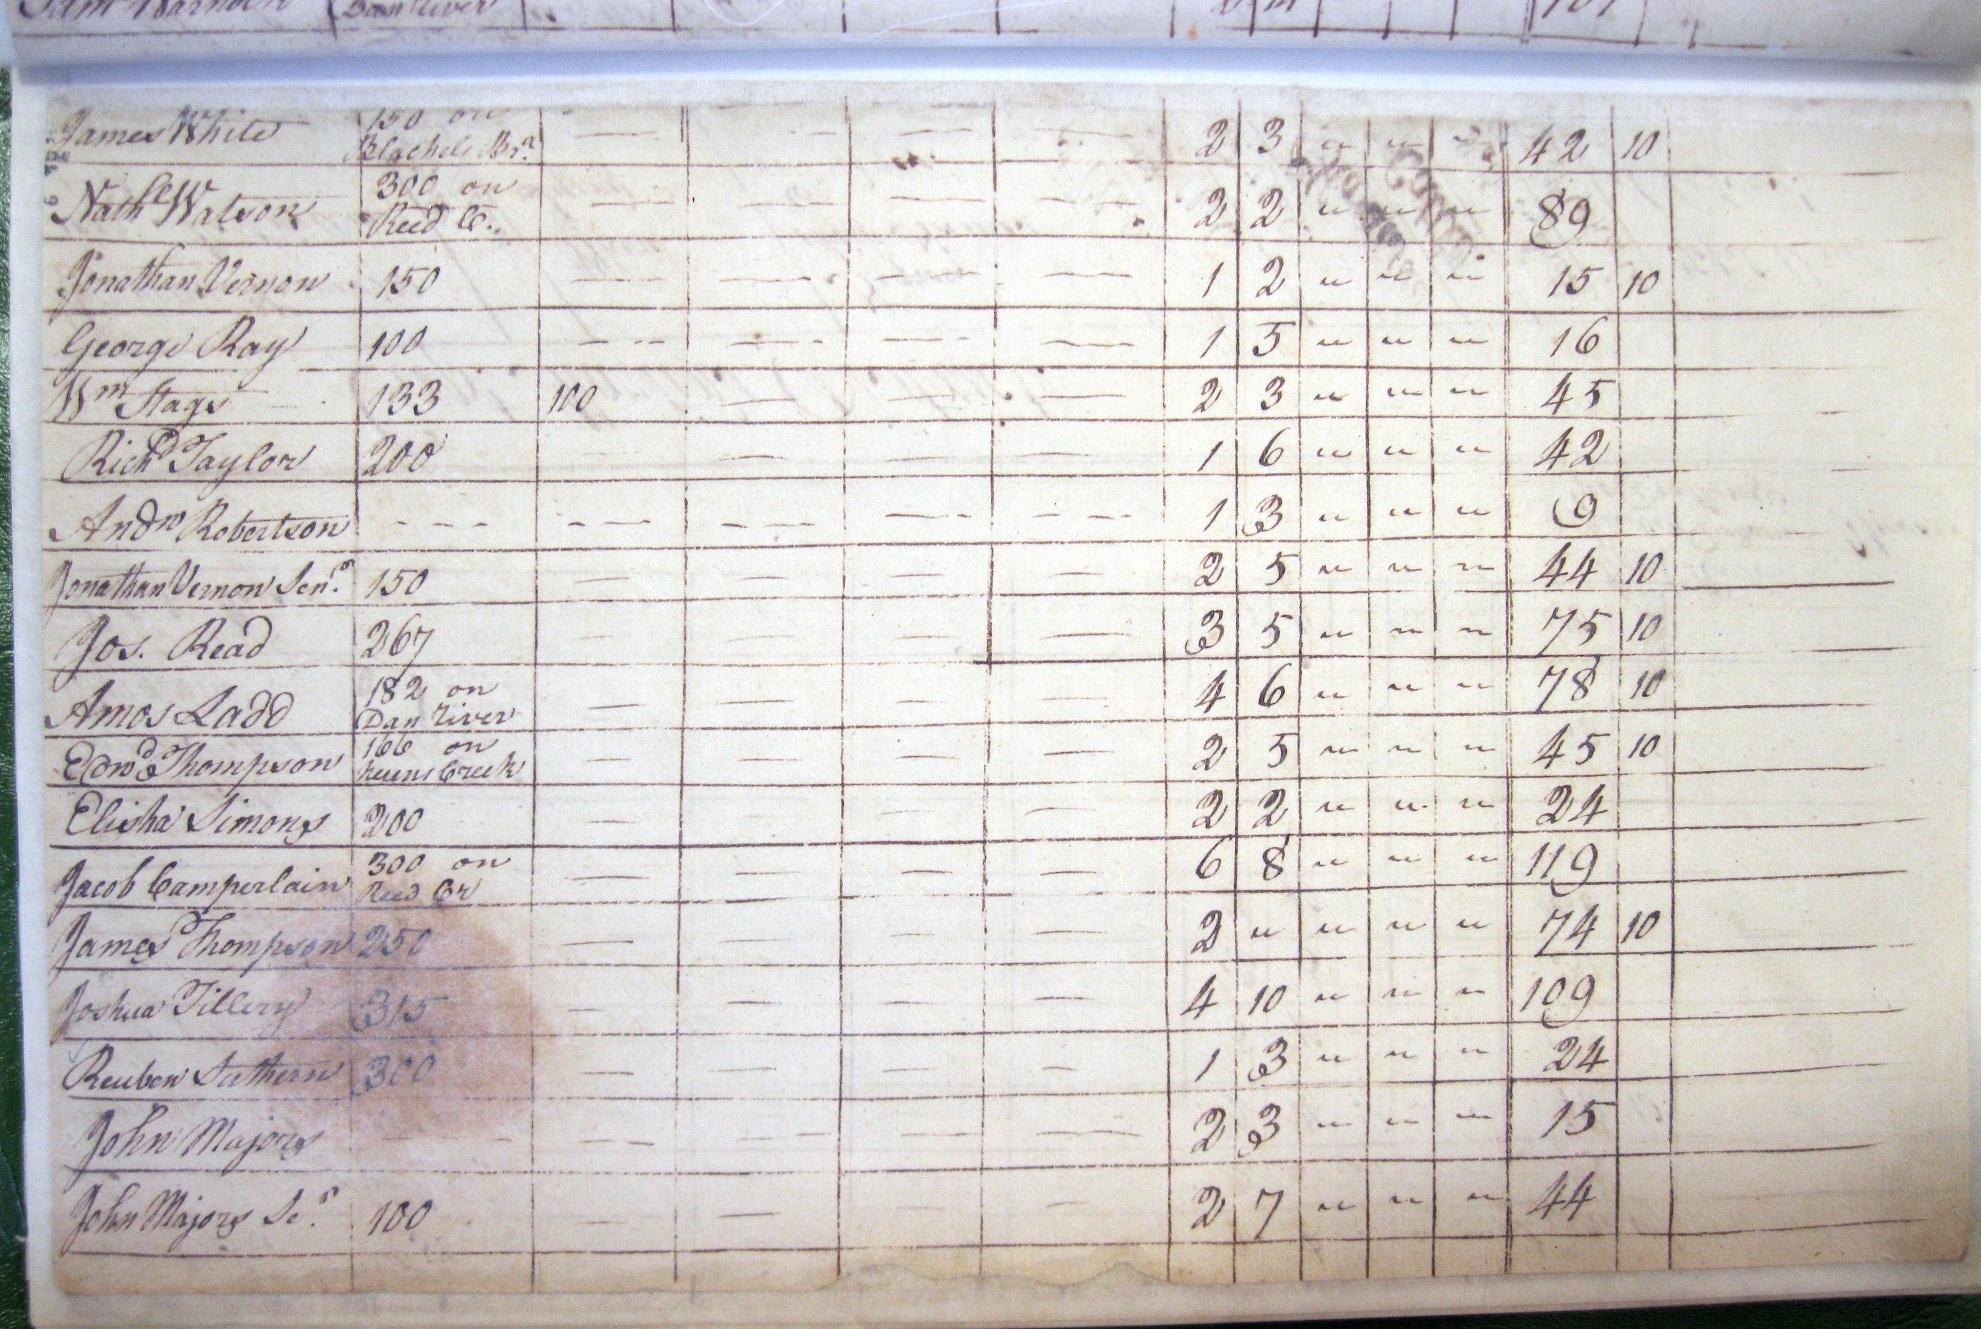 Dan River
James White 150 on — — — — 2 3 " " " 42 10
Br.
Nathl Watson 300 on — — — — 2 2 " " " 89
Reed C.
Jonathan Vernon 150 — — — — 1 2 " " " 15 10
George Ray 100 — — — — 1 5 " " " 16
Wm Stags 133 100 — — — 2 3 " " " 45
Richd Taylor 200 — — — — 1 6 " " " 42
Andw Robertson — — — — — 1 3 " " " 9
Jonathan Vernon Senr. 150 — — — — 2 5 " " " 44 10
Jos. Read 267 — — — — 3 5 " " " 75 10
Amos Ladd 182 on — — — — 4 6 " " " 78 10
Dan River
Edwd Thompson 166 on — — — — 2 5 " " " 45 10
Creek
Elisha Simons 200 — — — — 2 2 " " " 24
Jacob Camperlain 300 on — — — — 6 8 " " " 119
Reed Cr
James Thompson 250 — — — — 2 " " " " 74 10
Joshua Tillery 315 — — — — 4 10 " " " 109
Reuben Suthern 300 — — — — 1 3 " " " 24
John Majors — — — — — 2 3 " " " 15
John Majors Sr. 100 — — — — 2 7 " " " 44